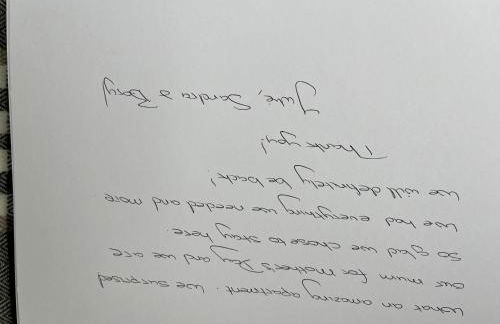 What an amazing apartment. We surprised
our mum for Mother's Day and we are
so glad we chose to stay here.
We had everything we needed and more
We will definitely be back!
Thank you!
Sandra & Rory